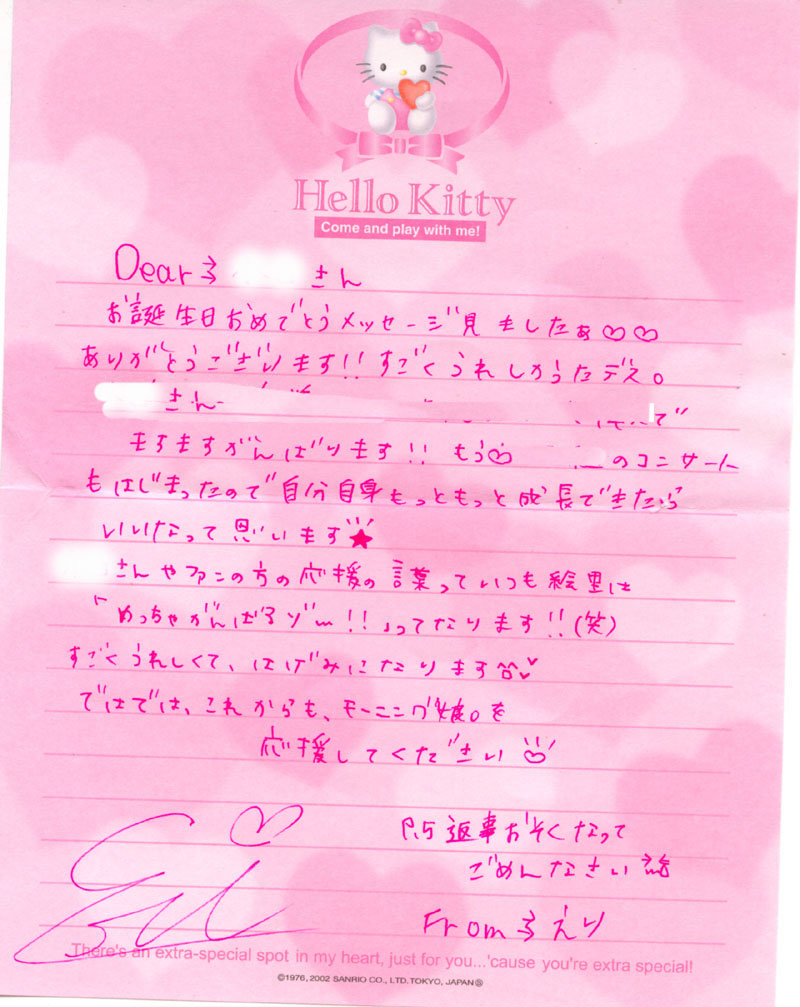 Hello Kitty
Come and play with me!
Dear さん
お誕生日おめでとうメッセージ見ましたぁ♡♡
ありがとうございます!!すごくうれしかったデス。
さん
ますますがんばります!!もう♡ のコンサート
もはじまったので自分自身もっともっと成長できたら
いいなって思います★
さんやファンの方の応援の言葉っていつも絵里は
「めっちゃがんばるゾー!!」ってなります!!(笑)
すごくうれしくて、はげみになります
ではでは、これからも、モーニング娘。を
応援してください
P.S返事おそくなって
ごめんなさい
From えり
There's an extra-special spot in my heart, just for you...'cause you're extra special!
©1976, 2002 SANRIO CO., LTD. TOKYO, JAPAN Ⓢ